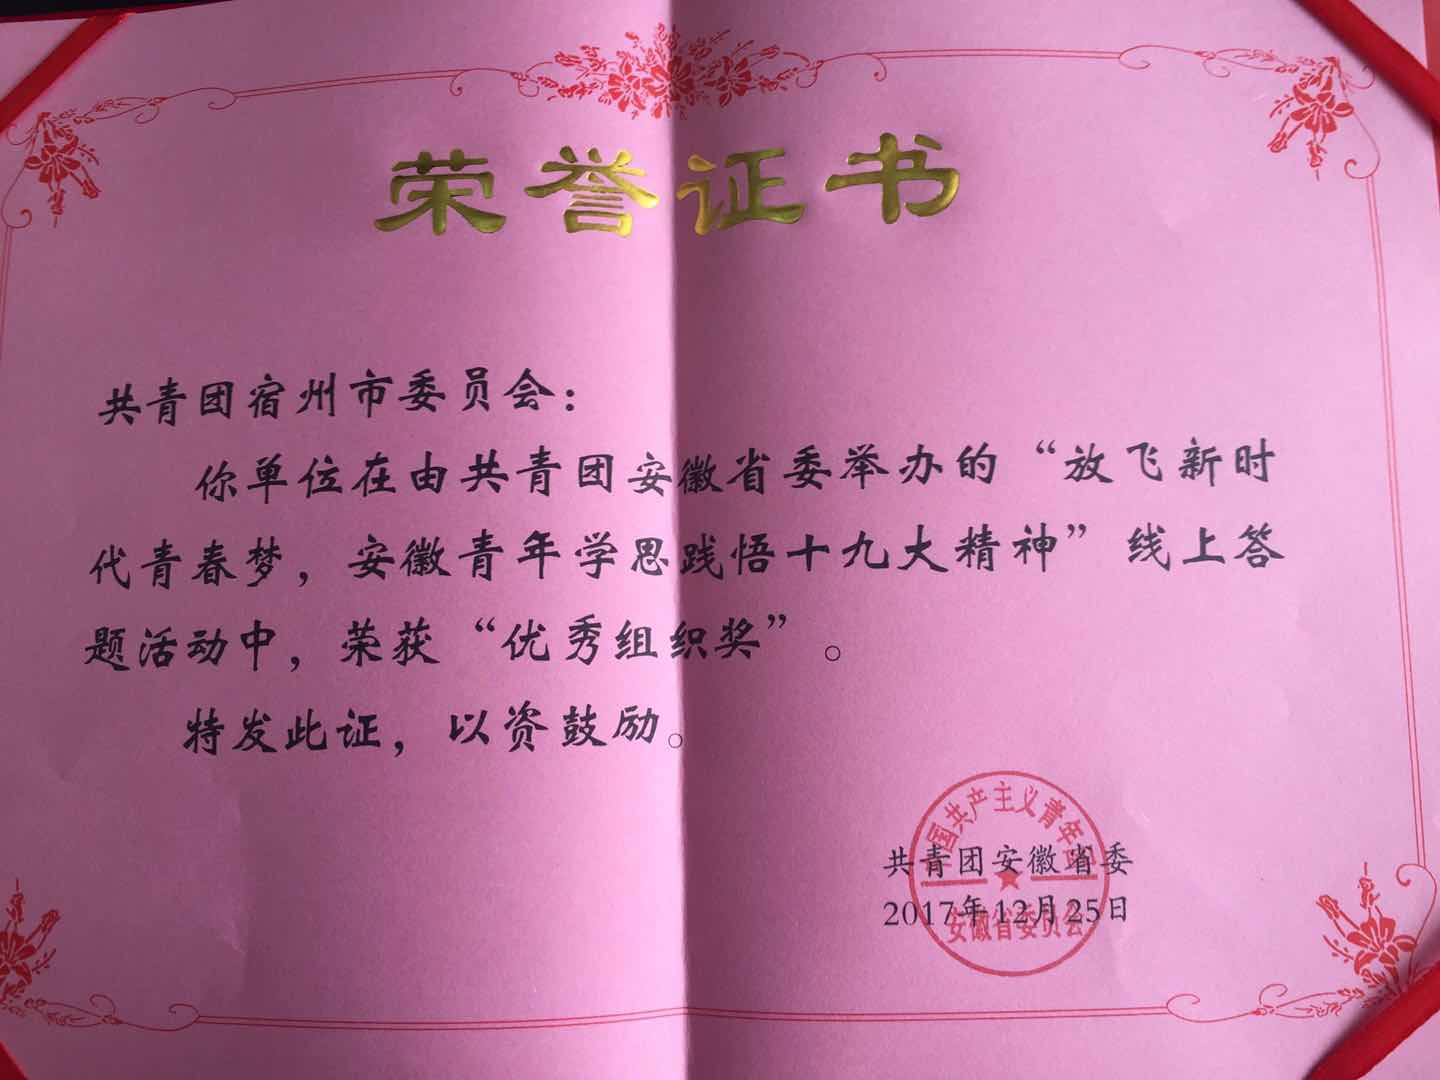 荣誉证书
共青团宿州市委员会：
你单位在由共青团安徽省委举办的“放飞新时
代青春梦，安徽青年学思践悟十九大精神”线上答
题活动中，荣获“优秀组织奖”。
特发此证，以资鼓励。
国共产主义青年团
共青团安徽省委
2017年12月25日
安徽省委员会